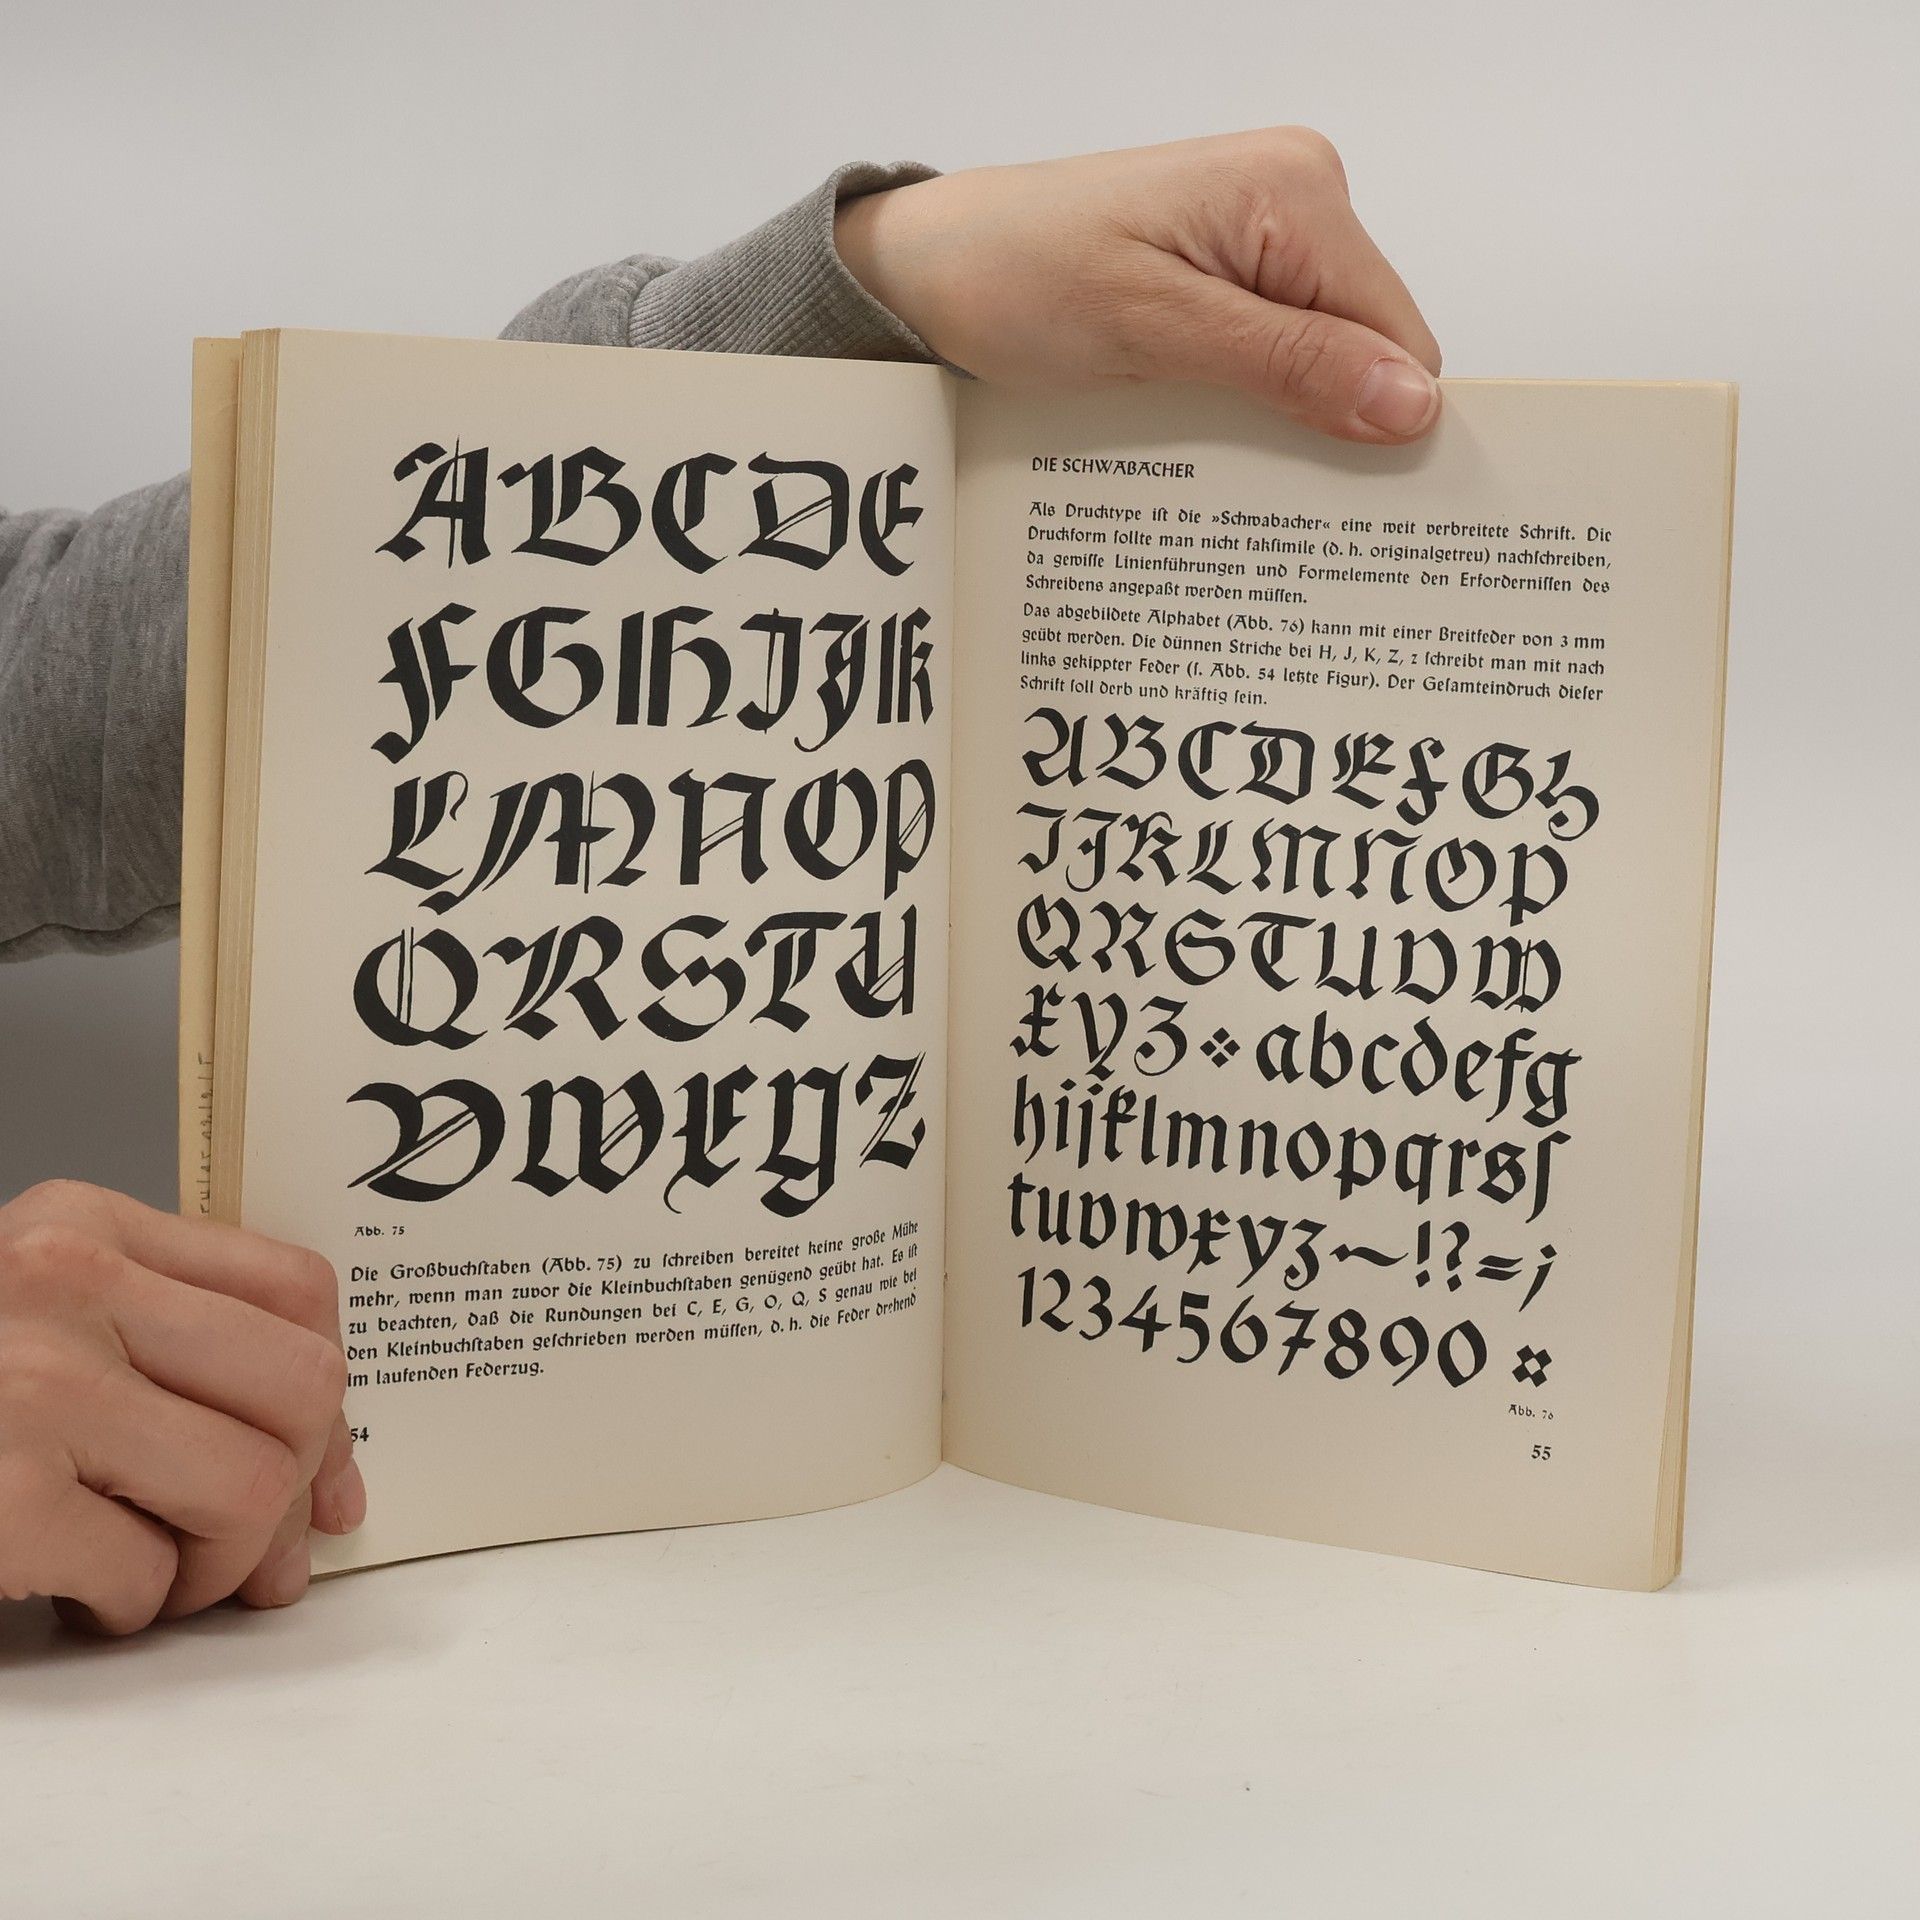 ABCDE
FGHIJK
LMNOP
QRSTU
VWXYZ
Abb. 75
Die Großbuchſtaben (Abb. 75) zu ſchreiben bereitet keine große Mühe
mehr, wenn man zuvor die Kleinbuchſtaben genügend geübt hat. Es iſt
zu beachten, daß die Rundungen bei C, E, G, O, Q, S genau wie bei
den Kleinbuchſtaben geſchrieben werden müſſen, d. h. die Feder drehend
im laufenden Federzug.
54
DIE SCHWABACHER
Als Drucktype iſt die »Schwabacher« eine weit verbreitete Schrift. Die
Druckform ſollte man nicht fakſimile (d. h. originalgetreu) nachſchreiben,
da gewiſſe Linienführungen und Formelemente den Erforderniſſen des
Schreibens angepaßt werden müſſen.
Das abgebildete Alphabet (Abb. 76) kann mit einer Breitfeder von 3 mm
geübt werden. Die dünnen Striche bei H, J, K, Z, z ſchreibt man mit nach
links gekippter Feder (ſ. Abb. 54 letzte Figur). Der Geſamteindruck dieſer
Schrift ſoll derb und kräftig ſein.
ABCDEFGH
IJKLMNOP
QRSTUVW
XYZ❖abcdefg
hijklmnopqrsſ
tuvwxyz~~!?=;
1234567890 ❖
Abb. 76
55